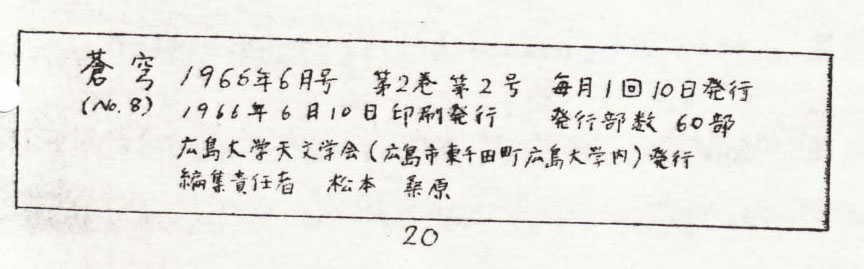 蒼穹 1966年6月号 第2巻第2号 毎月1回10日発行
(No.8) 1966年6月10日印刷発行 発行部数 60部
広島大学天文学会(広島市東千田町広島大学内)発行
編集責任者 松本 桑原
20